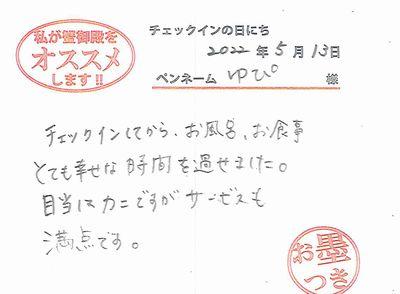 私が蟹御殿を
オススメ
します!!
チェックインの日にち
2022年5月13日
ペンネーム ゆぴ 様
チェックインしてから、お風呂、お食事
とても幸せな時間を過せました。
目当はカニですがサービスも
満点です。
お墨
つき